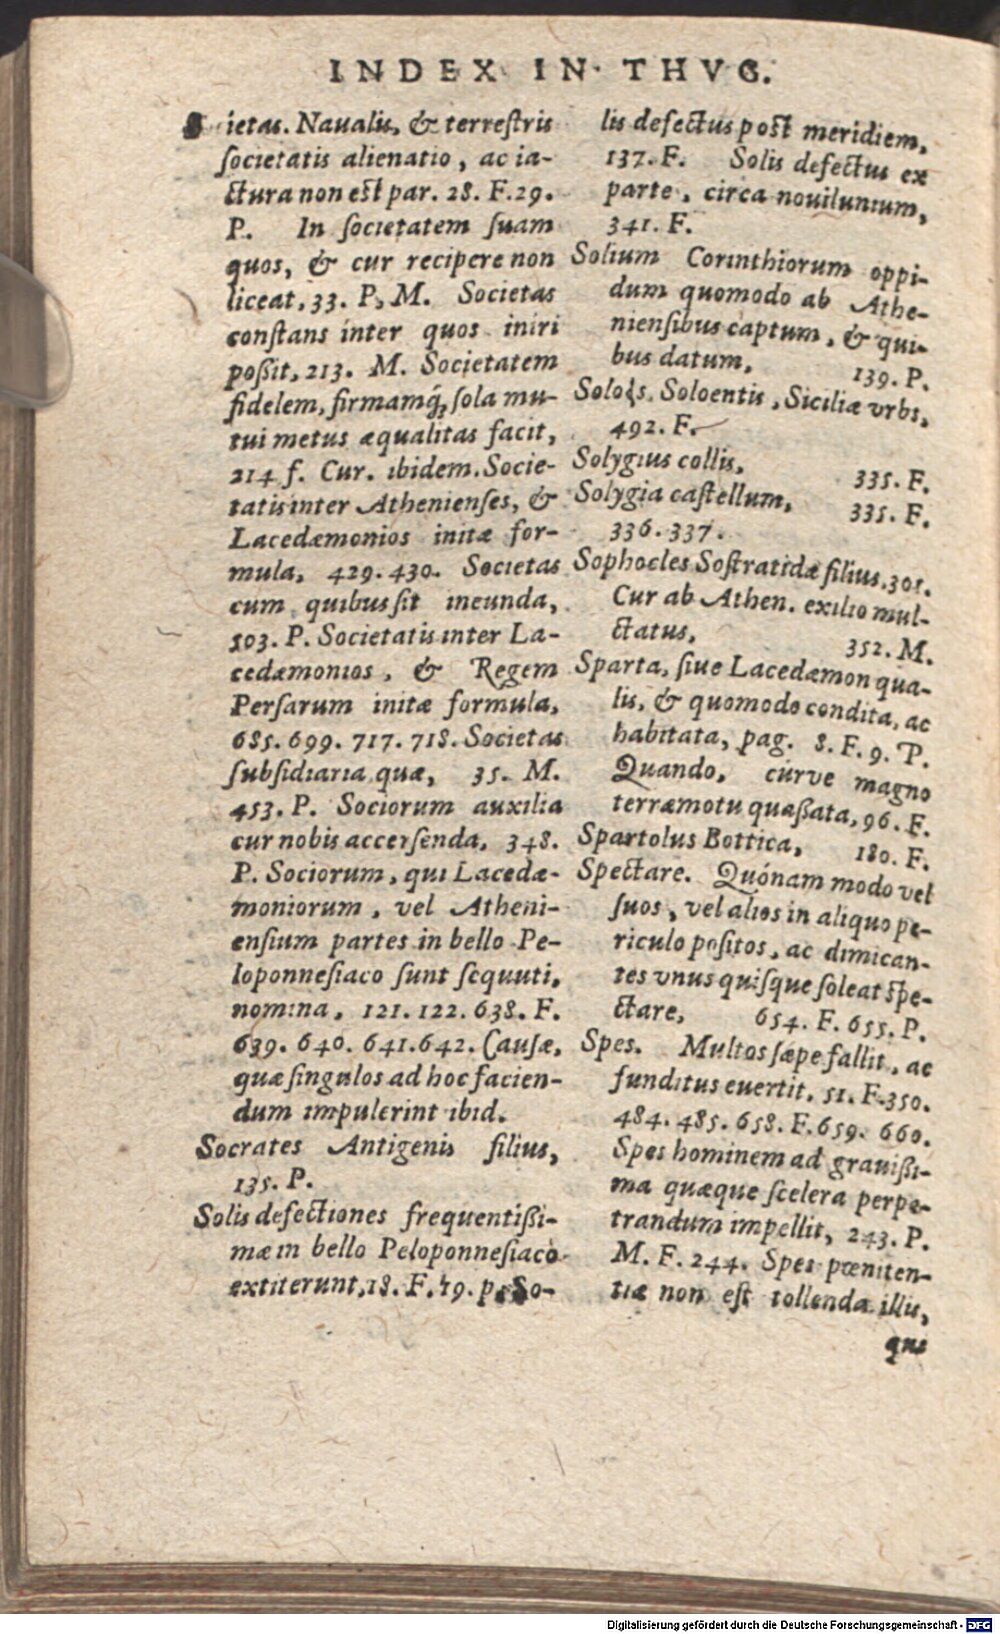 INDEX IN THVG.
ietas. Naualis, & terrestris
societatis alienatio, ac ia-
ctura non est par. 28. F. 29.
P. In societatem suam
quos, & cur recipere non
liceat, 33. P. M. Societas
constans inter quos iniri
poßit, 213. M. Societatem
fidelem, firmamq́; sola mu-
tui metus æqualitas facit,
214 f. Cur. ibidem. Socie-
tatis inter Athenienses, &
Lacedæmonios initæ for-
mula, 429. 430. Societas
cum quibus sit ineunda,
503. P. Societatis inter La-
cedæmonios, & Regem
Persarum initæ formula,
685. 699. 717. 718. Societas
subsidiaria quæ, 35. M.
453. P. Sociorum auxilia
cur nobis accersenda, 348.
P. Sociorum, qui Lacedæ-
moniorum, vel Atheni-
ensium partes in bello Pe-
loponnesiaco sunt sequuti,
nomina, 121. 122. 638. F.
639. 640. 641. 642. Causæ,
quæ singulos ad hoc facien-
dum impulerint ibid.
Socrates Antigenis filius,
135. P.
Solis defectiones frequentißi-
mæ in bello Peloponnesiaco
extiterunt, 18. F. 19. p. So-
lis defectus post meridiem,
137. F. Solis defectus ex
parte, circa nouilunium,
341. F.
Solium Corinthiorum oppi-
dum quomodo ab Athe-
niensibus captum, & qui-
bus datum, 139. P.
Soloentis, Siciliæ vrbs,
492. F.
Solygius collis, 335. F.
Solygia castellum, 335. F.
336. 337.
Sophocles Sostratidæ filius, 301.
Cur ab Athen. exilio mul-
ctatus, 352. M.
Sparta, siue Lacedæmon qua-
lis, & quomodo condita, ac
habitata, pag. 8. F. 9. P.
Quando, curve magno
terræmotu quaßata, 96. F.
Spartolus Bottica, 180. F.
Spectare. Quónam modo vel
suos, vel alios in aliquo pe-
riculo positos, ac dimican-
tes vnusquisque soleat spe-
ctare, 654. F. 655. P.
Spes. Multos sæpe fallit, ac
funditus euertit, 51. F. 350.
484. 485. 658. F. 659. 660.
Spes hominem ad grauißi-
ma quæque scelera perpe-
trandum impellit, 243. P.
M. F. 244. Spes pœniten-
tiæ non est tollenda illis,
qui
Digitalisierung gefördert durch die Deutsche Forschungsgemeinschaft - DFG